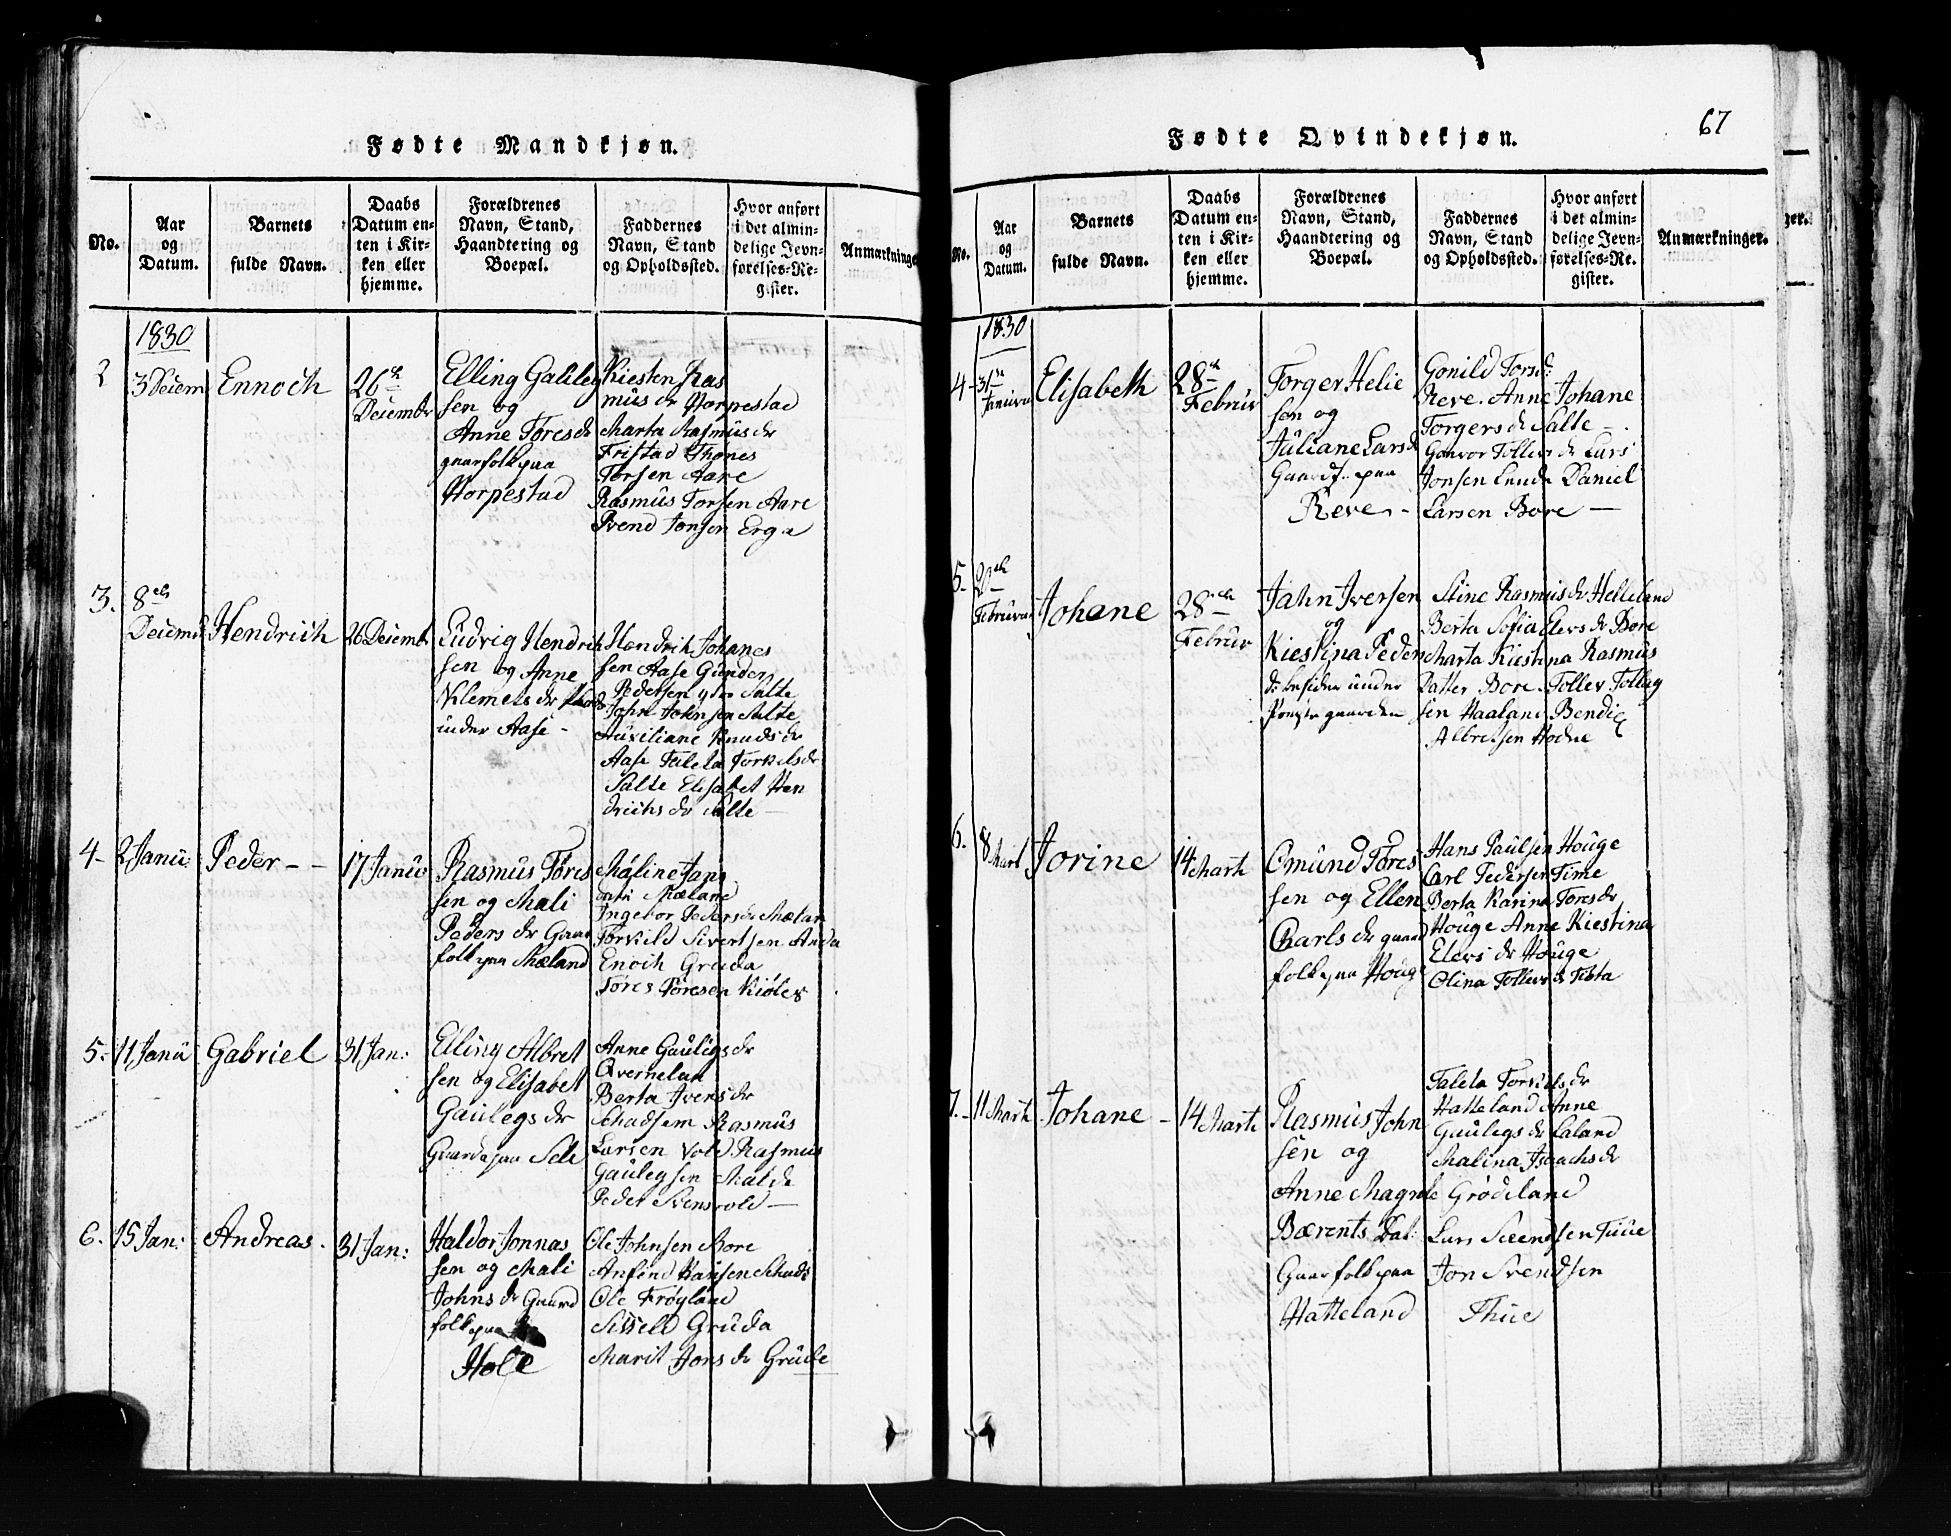 67
Fødte Mandkjøn.
No.
Aar
og
Datum.
Barnets
fulde Navn.
Daabs
Datum en-
ten i Kir-
ken eller
hjemme.
Forældrenes
Navn, Stand,
Haandtering og
Boepæl.
Faddernes
Navn, Stand
og Opholdssted.
Hvor anført
i det almin-
delige Jevn-
førelses-Re-
gister.
Anmærkninge
1830
2
3 Deiem
Ennoch
26de
Deiembr
Elling Galileg
sen og
Anne Toresdr
gaarfolk paa
Horpestad
Kiesten Ras
musdr Horpestad
Marta Rasmusdr
Fristad Thones
Torsen Aare
Rasmus Torsen Aare
Svend Jonsen Erga
3.
8de
Deiemb
Hendrich
26 Deiembr
Ludvig Hendrich
sen og Anne
Klemetsdr
under Aase -
Hendrik Johanes
sen Aase Gunder
Pedersen Salte
John Johnsen Salte
Knudsdr
Aase Taleta Torkelsdr
Salte Elisabet Hen
drichsdr Salte -
4-
2 Janu:
Peder - -
17 Januv
Rasmus Tores
sen og Mali
Pedersdr Gaar
folk paa Mæland
Maline Jans
datr Mæland
Ingebor Pedersdr Mælan
Torkild Sivertsen Anda
Enoch Gruda
Tores Toresen Kiølev
5-
11 Janu
Gabriel
31 Jan:
Elling Albret
sen og Elisabet
Gaulegsdr
Gaarda paa Sele
Anne Gauligsdr
Qvernelan
Berta Iversdr
Schadsem Rasmus
Larsen Vold Rasmus
Gaulegsen Malde
Peder Svensvold -
6.
15 Jan:
Andreas.
31 Jan:
Haldor Jonnas
sen og Mali
Johnsdr Gaard
folk paa
Hole
Ole Johnsen Bore
Anfind Hansen Schads
Ole Frøyland
Sissell Gruda
Marit Jonsdr Grude
Fødte Qvindekjøn.
No.
Aar
og
Datum.
Barnets
fulde Navn.
Daabs
Datum en-
ten i Kir-
ken eller
hjemme.
Forældrenes
Navn, Stand,
Haandtering og
Boepæl.
Faddernes
Navn, Stand
og Opholdssted.
Hvor anført
i det almin-
delige Jevn-
førelses-Re-
gister.
Anmærkninger.
1830
4-
31te
Januva
Elisabeth
28de
Februv
Torger Helie
sen og
Juliane Larsd
Gaardf. paa
Reve -
Gonild Torsd:
Reve. Anne Johane
Torgersd Salte -
Gunvor Tollevsdr Lars
Jonsen Lende Daniel
Larsen Bore -
5.
2de
Februva
Johane
28de
Februv
Jahn Iversen
og
Kiestina Peders
dr under
Præstegaarden
Stine Rasmusdr Helleland
Berta Sofia Elevsdr Bore
Marta Kiestina Rasmus
Datter Bore. Tollev Tolleg
sen Haaland Bendic
Albretsen Hodne
6.
8 Mart
Jorine
14 Marti
Omund Tores
sen og Ellen
Carlsdr gaard
folk paa Houge
Hans Paulsen Houge
Carl Pedersen Time
Berta Karina Toresdr
Houge Anne Kiestina
Elevsdr Houge
Olina Tollevsdr Tibta
7. -
11 Marti
Johane -
14 Marti
Rasmus John
sen og
Anne Magrete
Bærents Dat:
Gaarfolk paa
Hatteland
Taleta Torkelsdr
Hatteland Anne
Gaulegsdr Laland
Malina Isaachsdr
Grødeland
Lars Svendsen Tiue
Jon Svendsen
Thue
ger.